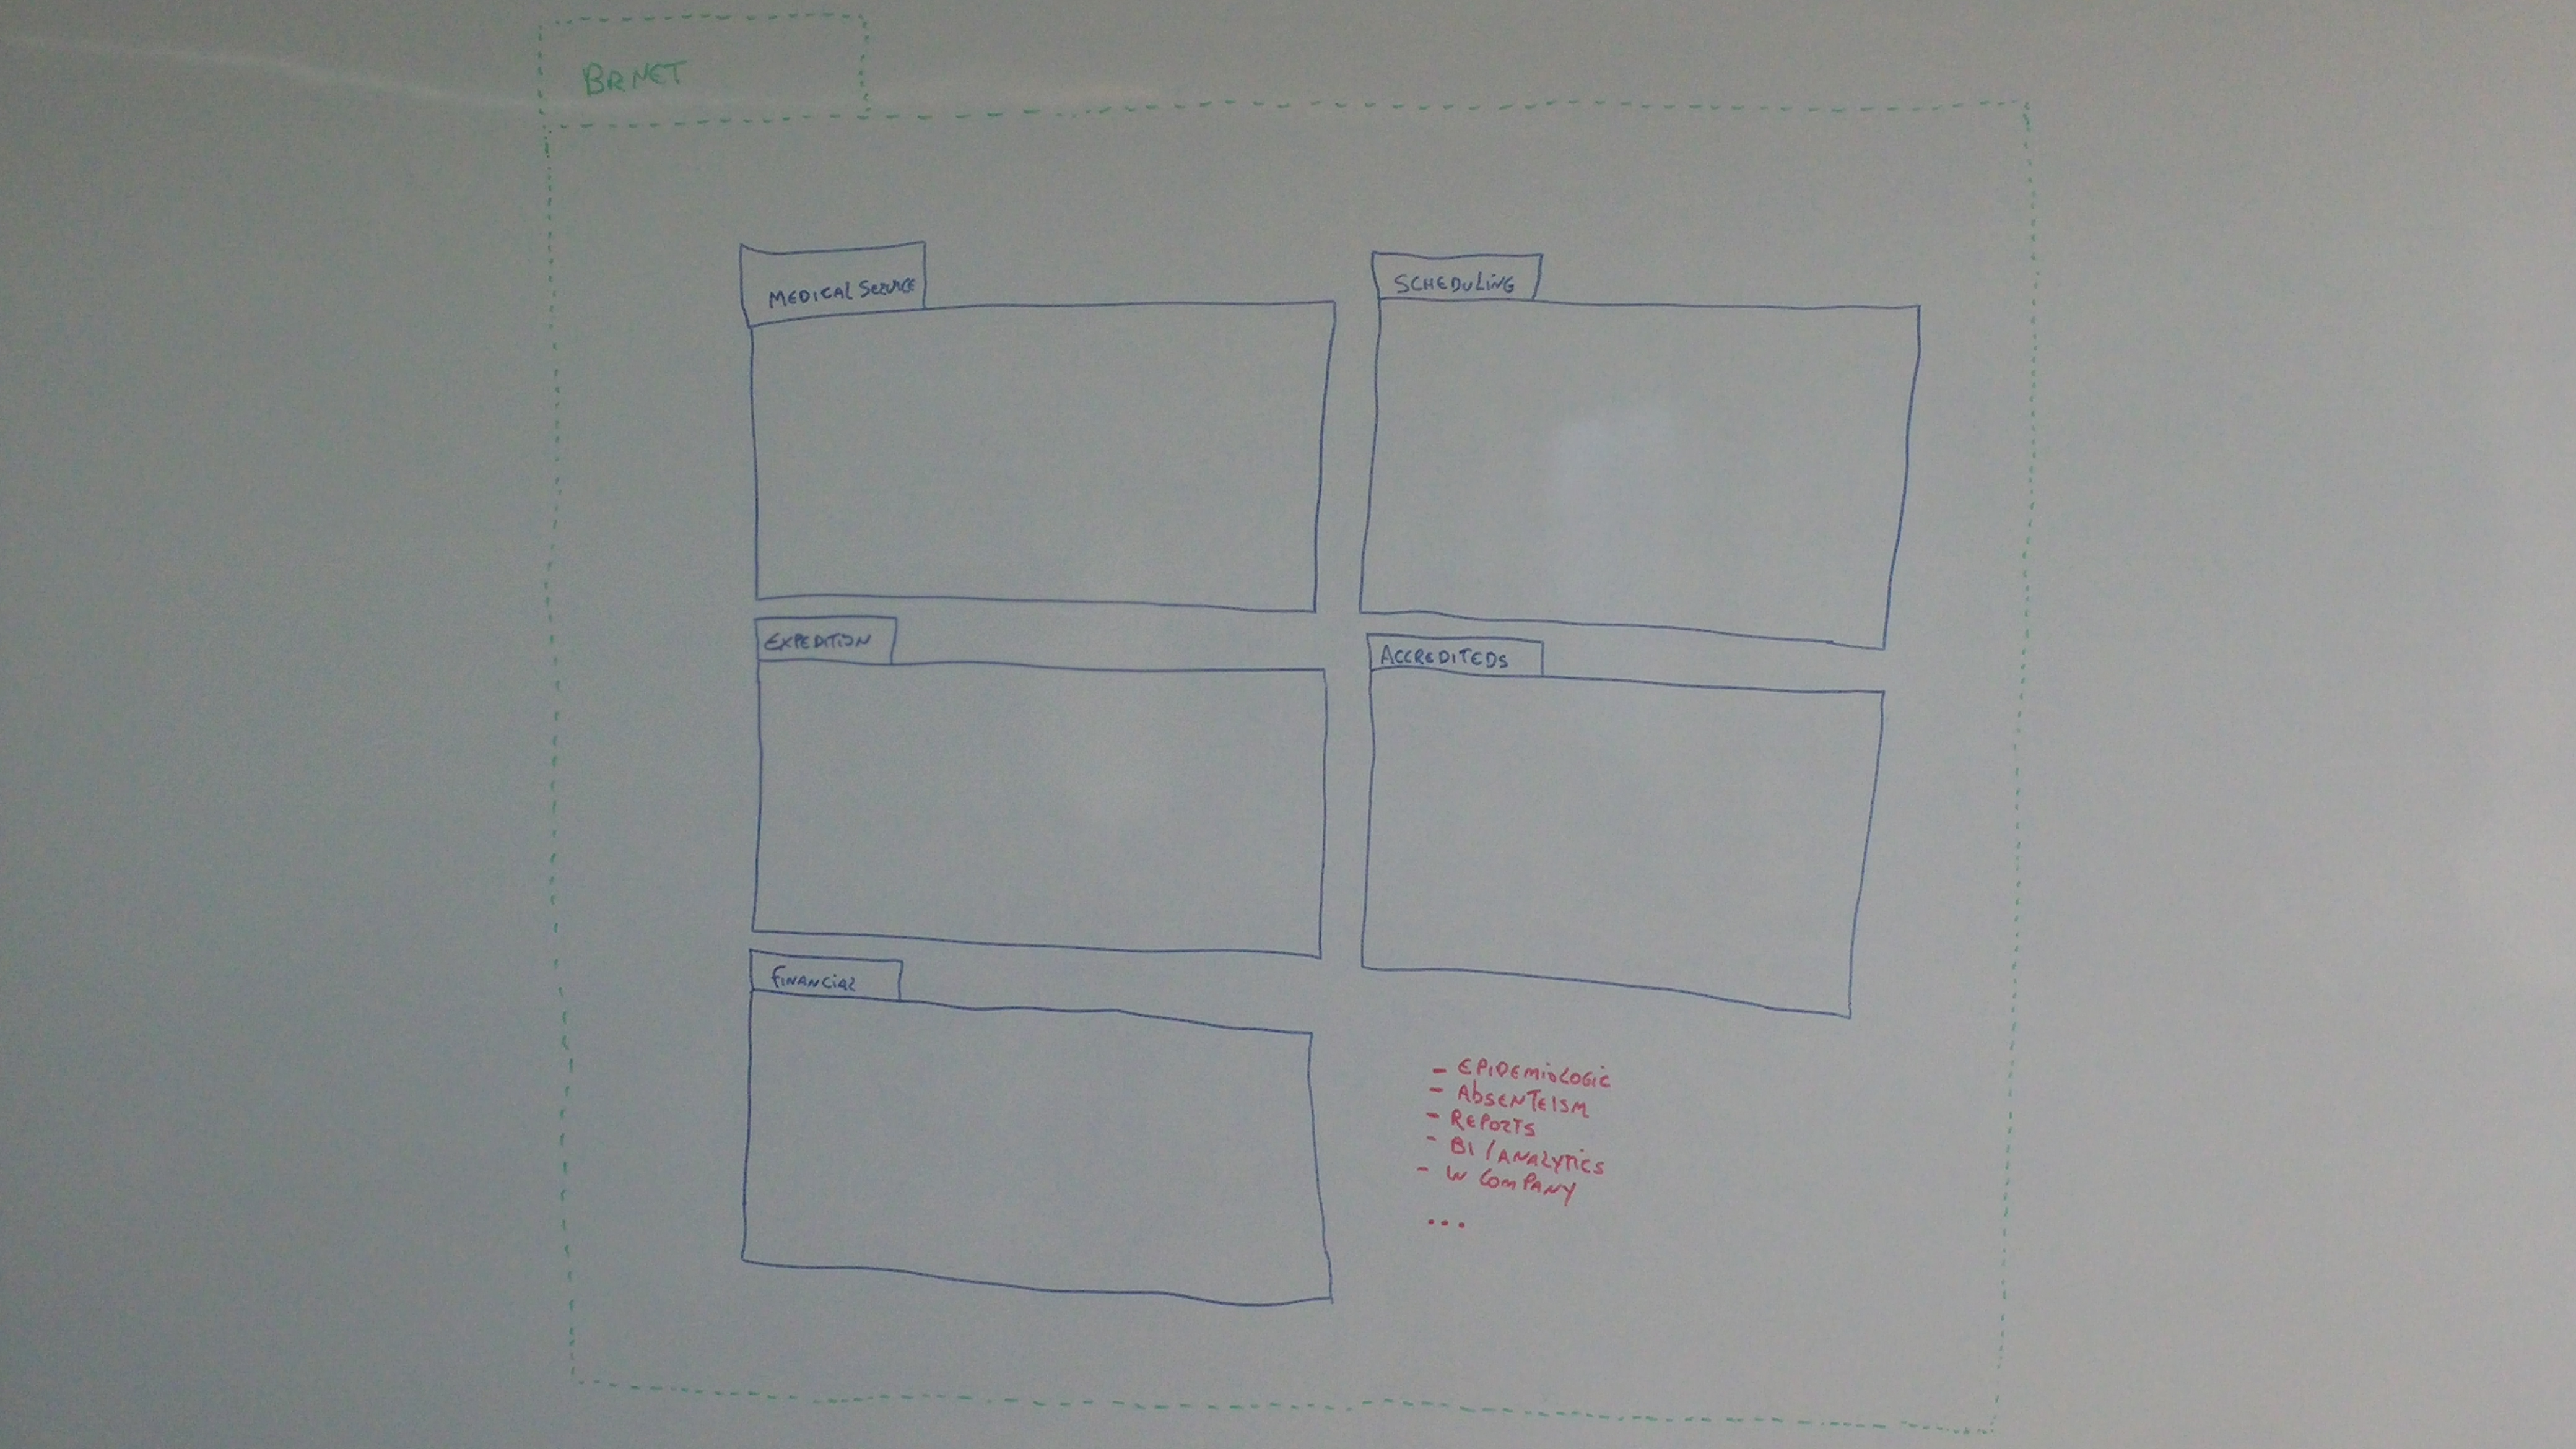 BRNET
MEDICAL SERVICE
SCHEDULING
EXPEDITION
ACCREDITEDS
FINANCIAL
- EPIDEMIOLOGIC
- ABSENTEISM
- REPORTS
- BI / ANALYTICS
- W COMPANY
...